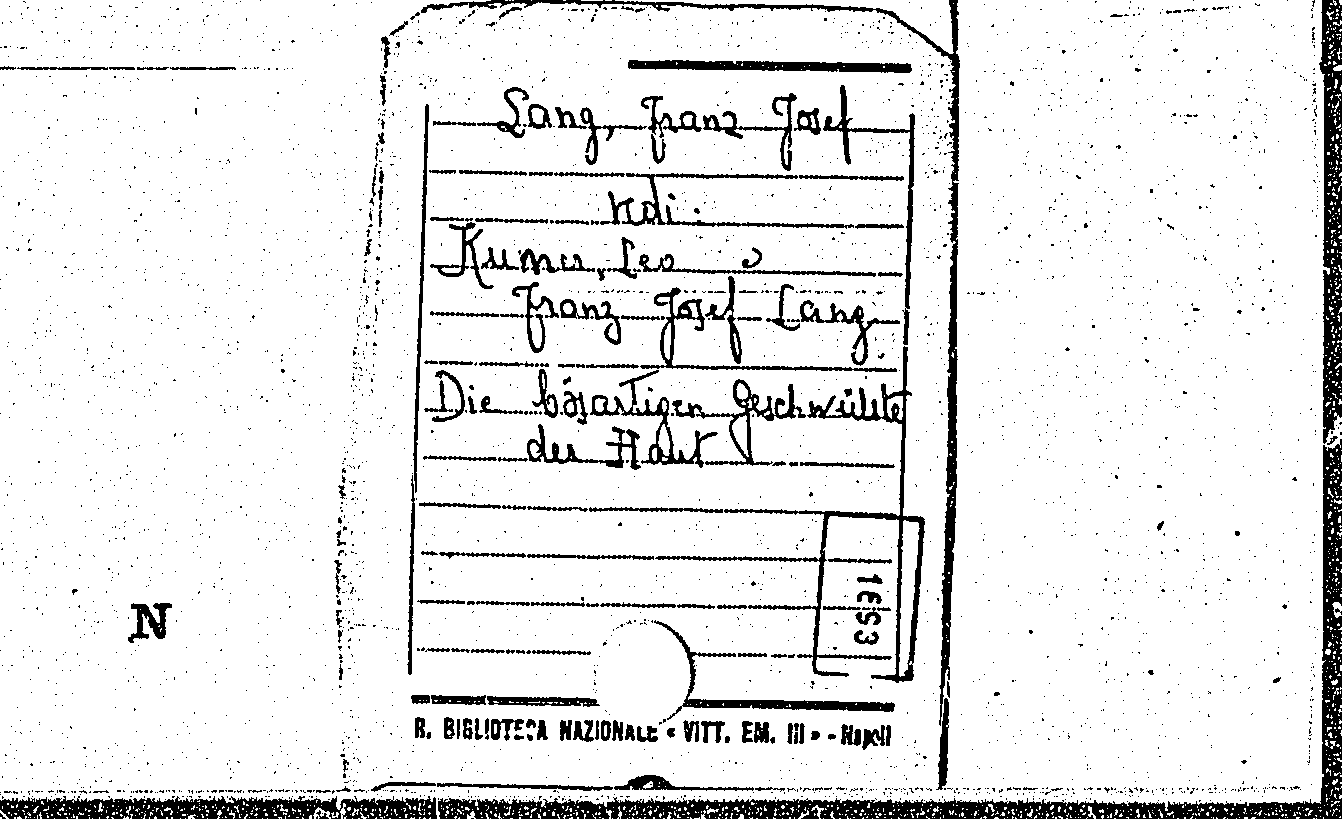 Lang, Franz Josef
vedi:
Kumer, Leo e
Franz Josef Lang.
Die bösartigen Geschwülste
der Haut
N
R. BIBLIOTECA NAZIONALE « VITT. EM. III » - Napoli